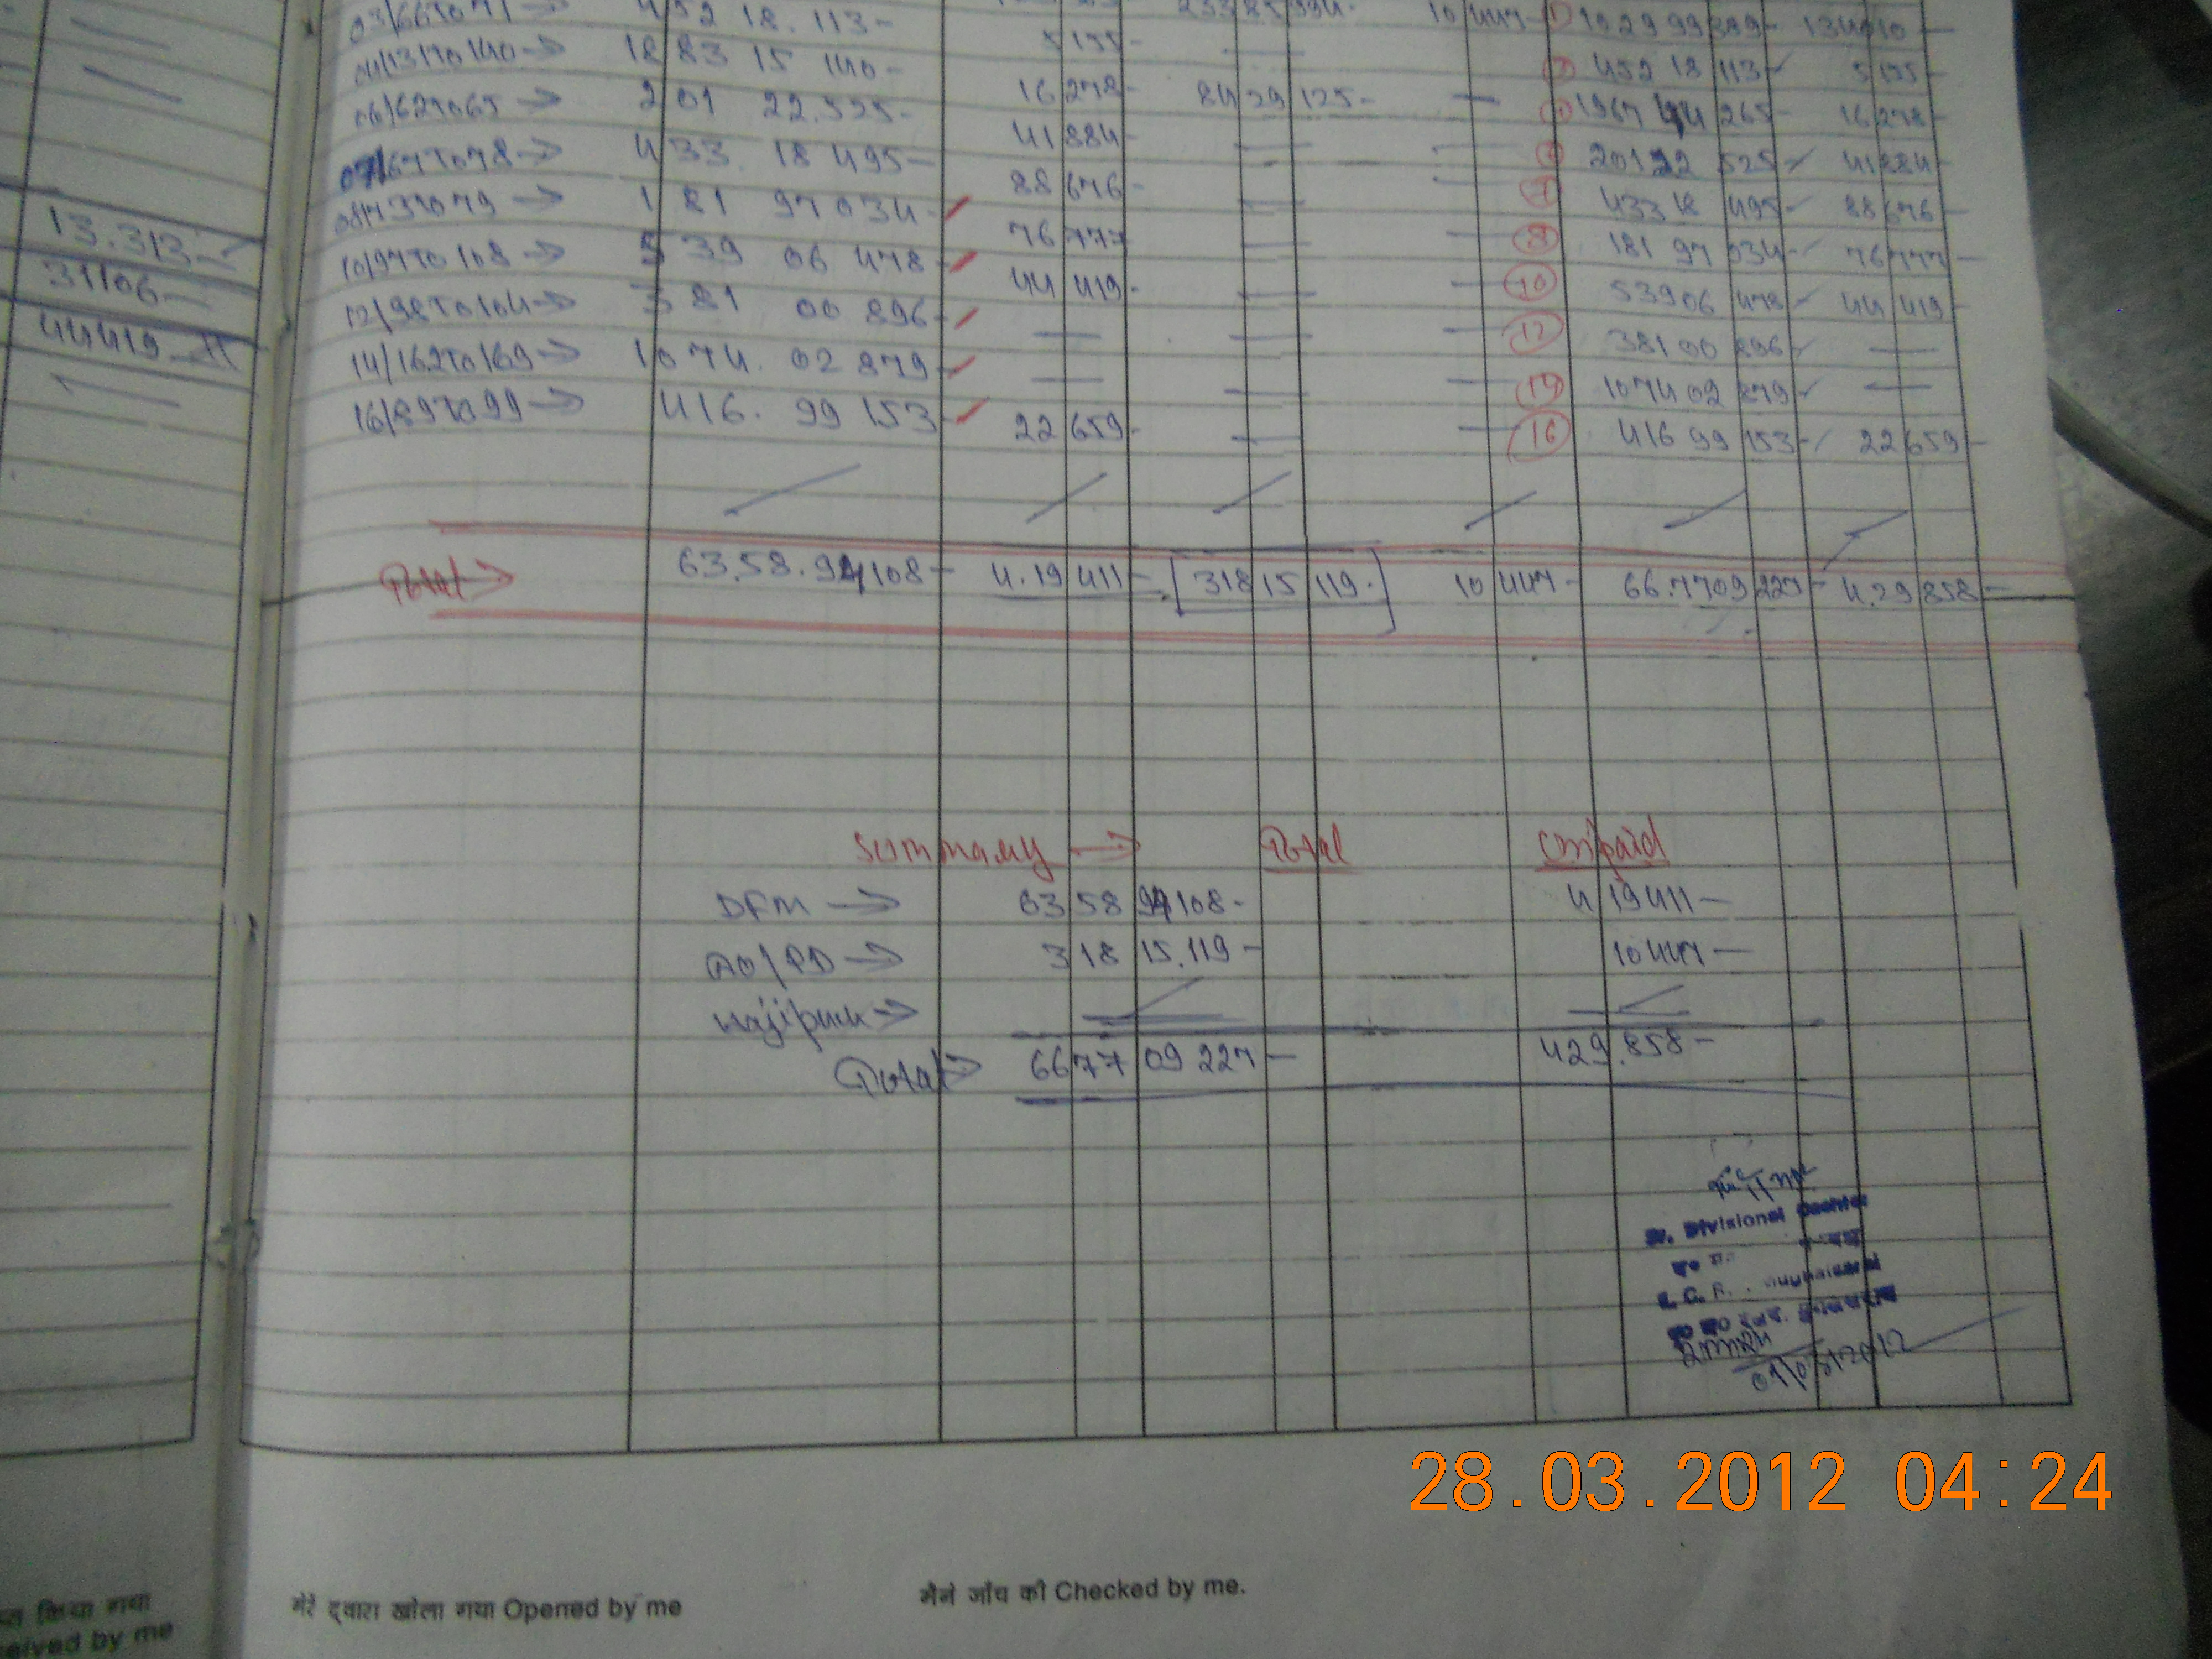 13.313-
31106-
44419-
03/66TO71→ 452 18.113- 10447- ① 1029 99 389- 134010-
04/131TO140→ 1883 15 140- 5155- ③ 452 18 113- 5155-
06/62TO65→ 201 22.525- 16278- 84 29 125- 1967 44 265- 16278-
07/67TO78→ 433. 18 495- 41884- 201 22 525- 41884-
08/73TO79→ 181 97034- 88676- ⑦ 433 18 495- 88676-
10/97TO108→ 539 06 478- 76777 ⑧ 181 97 034- 76777-
12/98TO104→ 381 00 896- 44419- ⑩ 53906 478- 44419
14/162TO169→ 1074. 02 879- ⑫ 38100 896
⑭ 107402 879-
16/89TO99→ 416. 99 153 22659- ⑯ 416 99 153- 22659-
Total→ 63.58.94108- 4.19 411- [318 15 119.] 10 447- 66.7709 227- 4.29 858-
Summary→ Total Unpaid
DFM→ 63 58 94 108- 4 19411-
AO/PD→ 318 15.119- 10447-
Hajipur→
Total→ 66 77 09 227- 429.858-
Sr. Divisional Cashier
28.03.2012 04:24
मेरे द्वारा खोला गया Opened by me
मैने जाँच की Checked by me.
किया गया
by me